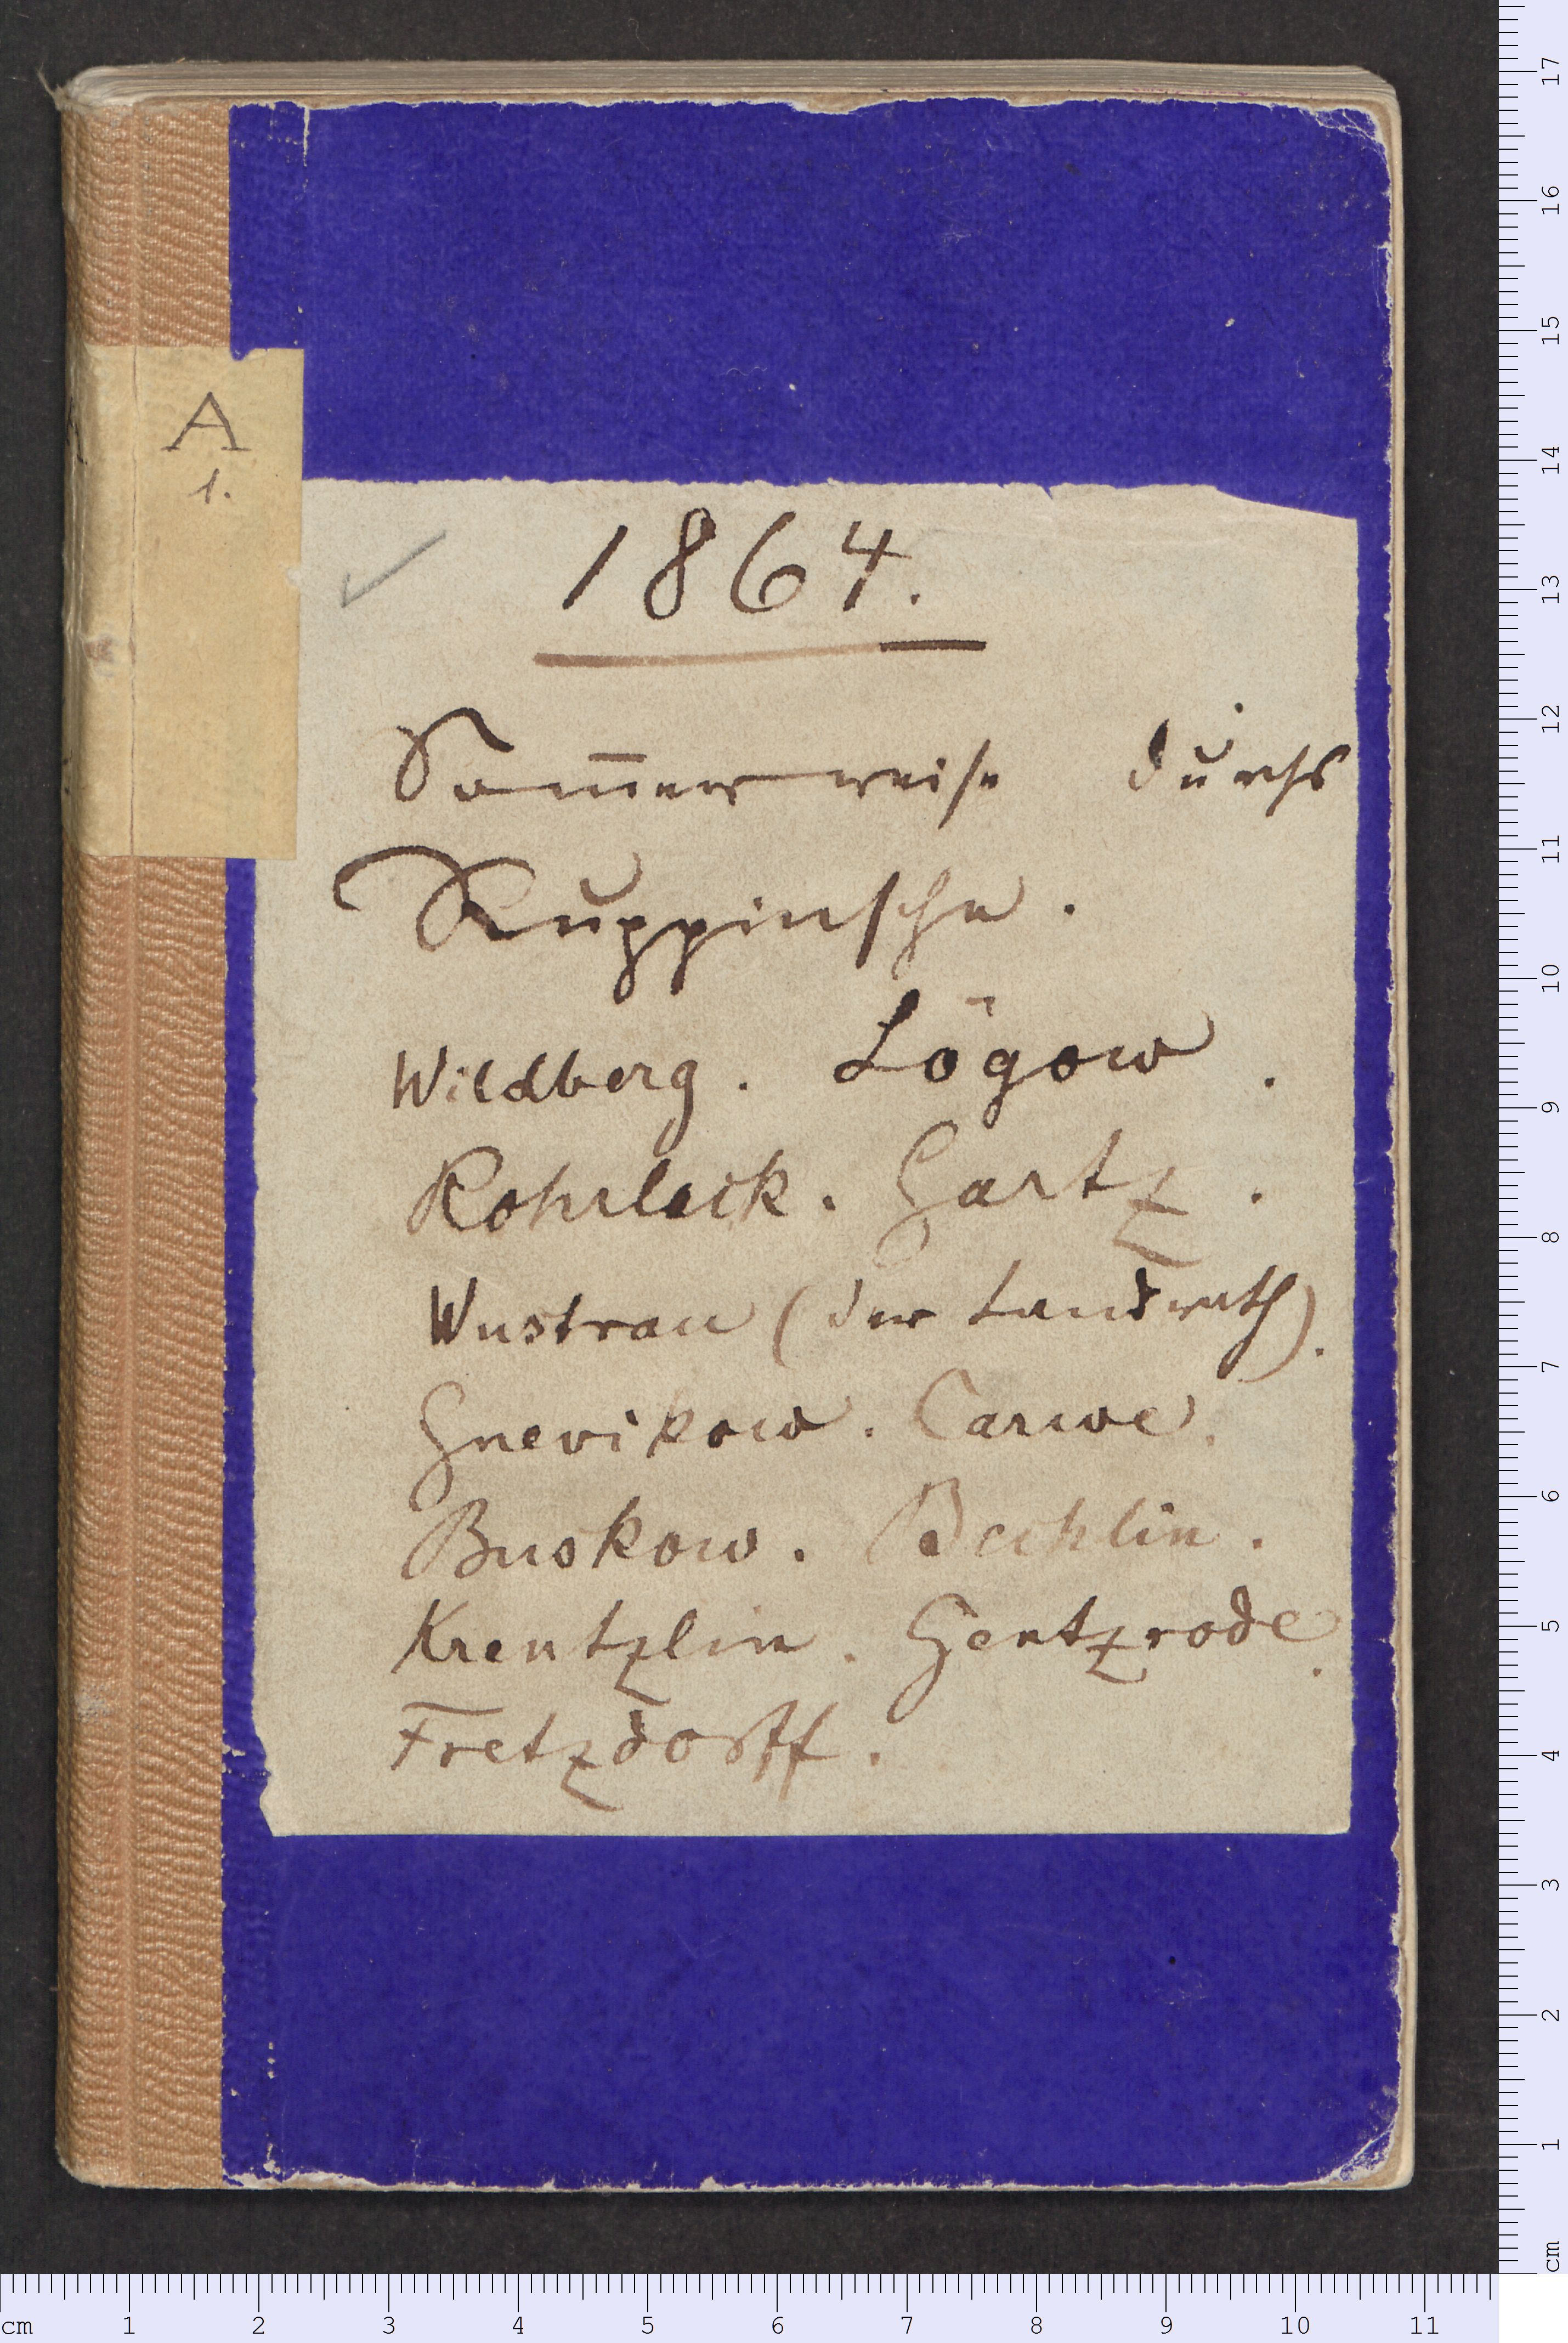 A
1.
1864.
Som̅erreise durchs
Ruppinsche.
Wildberg. Lögow.
Rohrlack. Gartz.
Wustrau (der Landrath).
Gnevikow. Carwe.
Buskow. Bechlin.
Krentzlin. Gentzrode.
Fretzdorff.
17
16
15
14
13
12
11
10
9
8
7
6
5
4
3
2
1
cm
cm 1 2 3 4 5 6 7 8 9 10 11